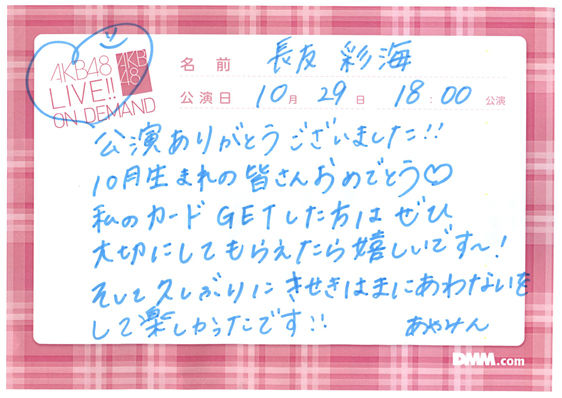 AKB48
LIVE!!
ON DEMAND
AKB
48
名前 長友 彩海
公演日 10月 29日 18:00 公演
公演ありがとうございました!!
10月生まれの皆さんおめでとう♡
私のカードGETした方はぜひ
大切にしてもらえたら嬉しいです〜!
そして久しぶりにきせきはまにあわないを
して楽しかったです!!
あやみん
DMM.com